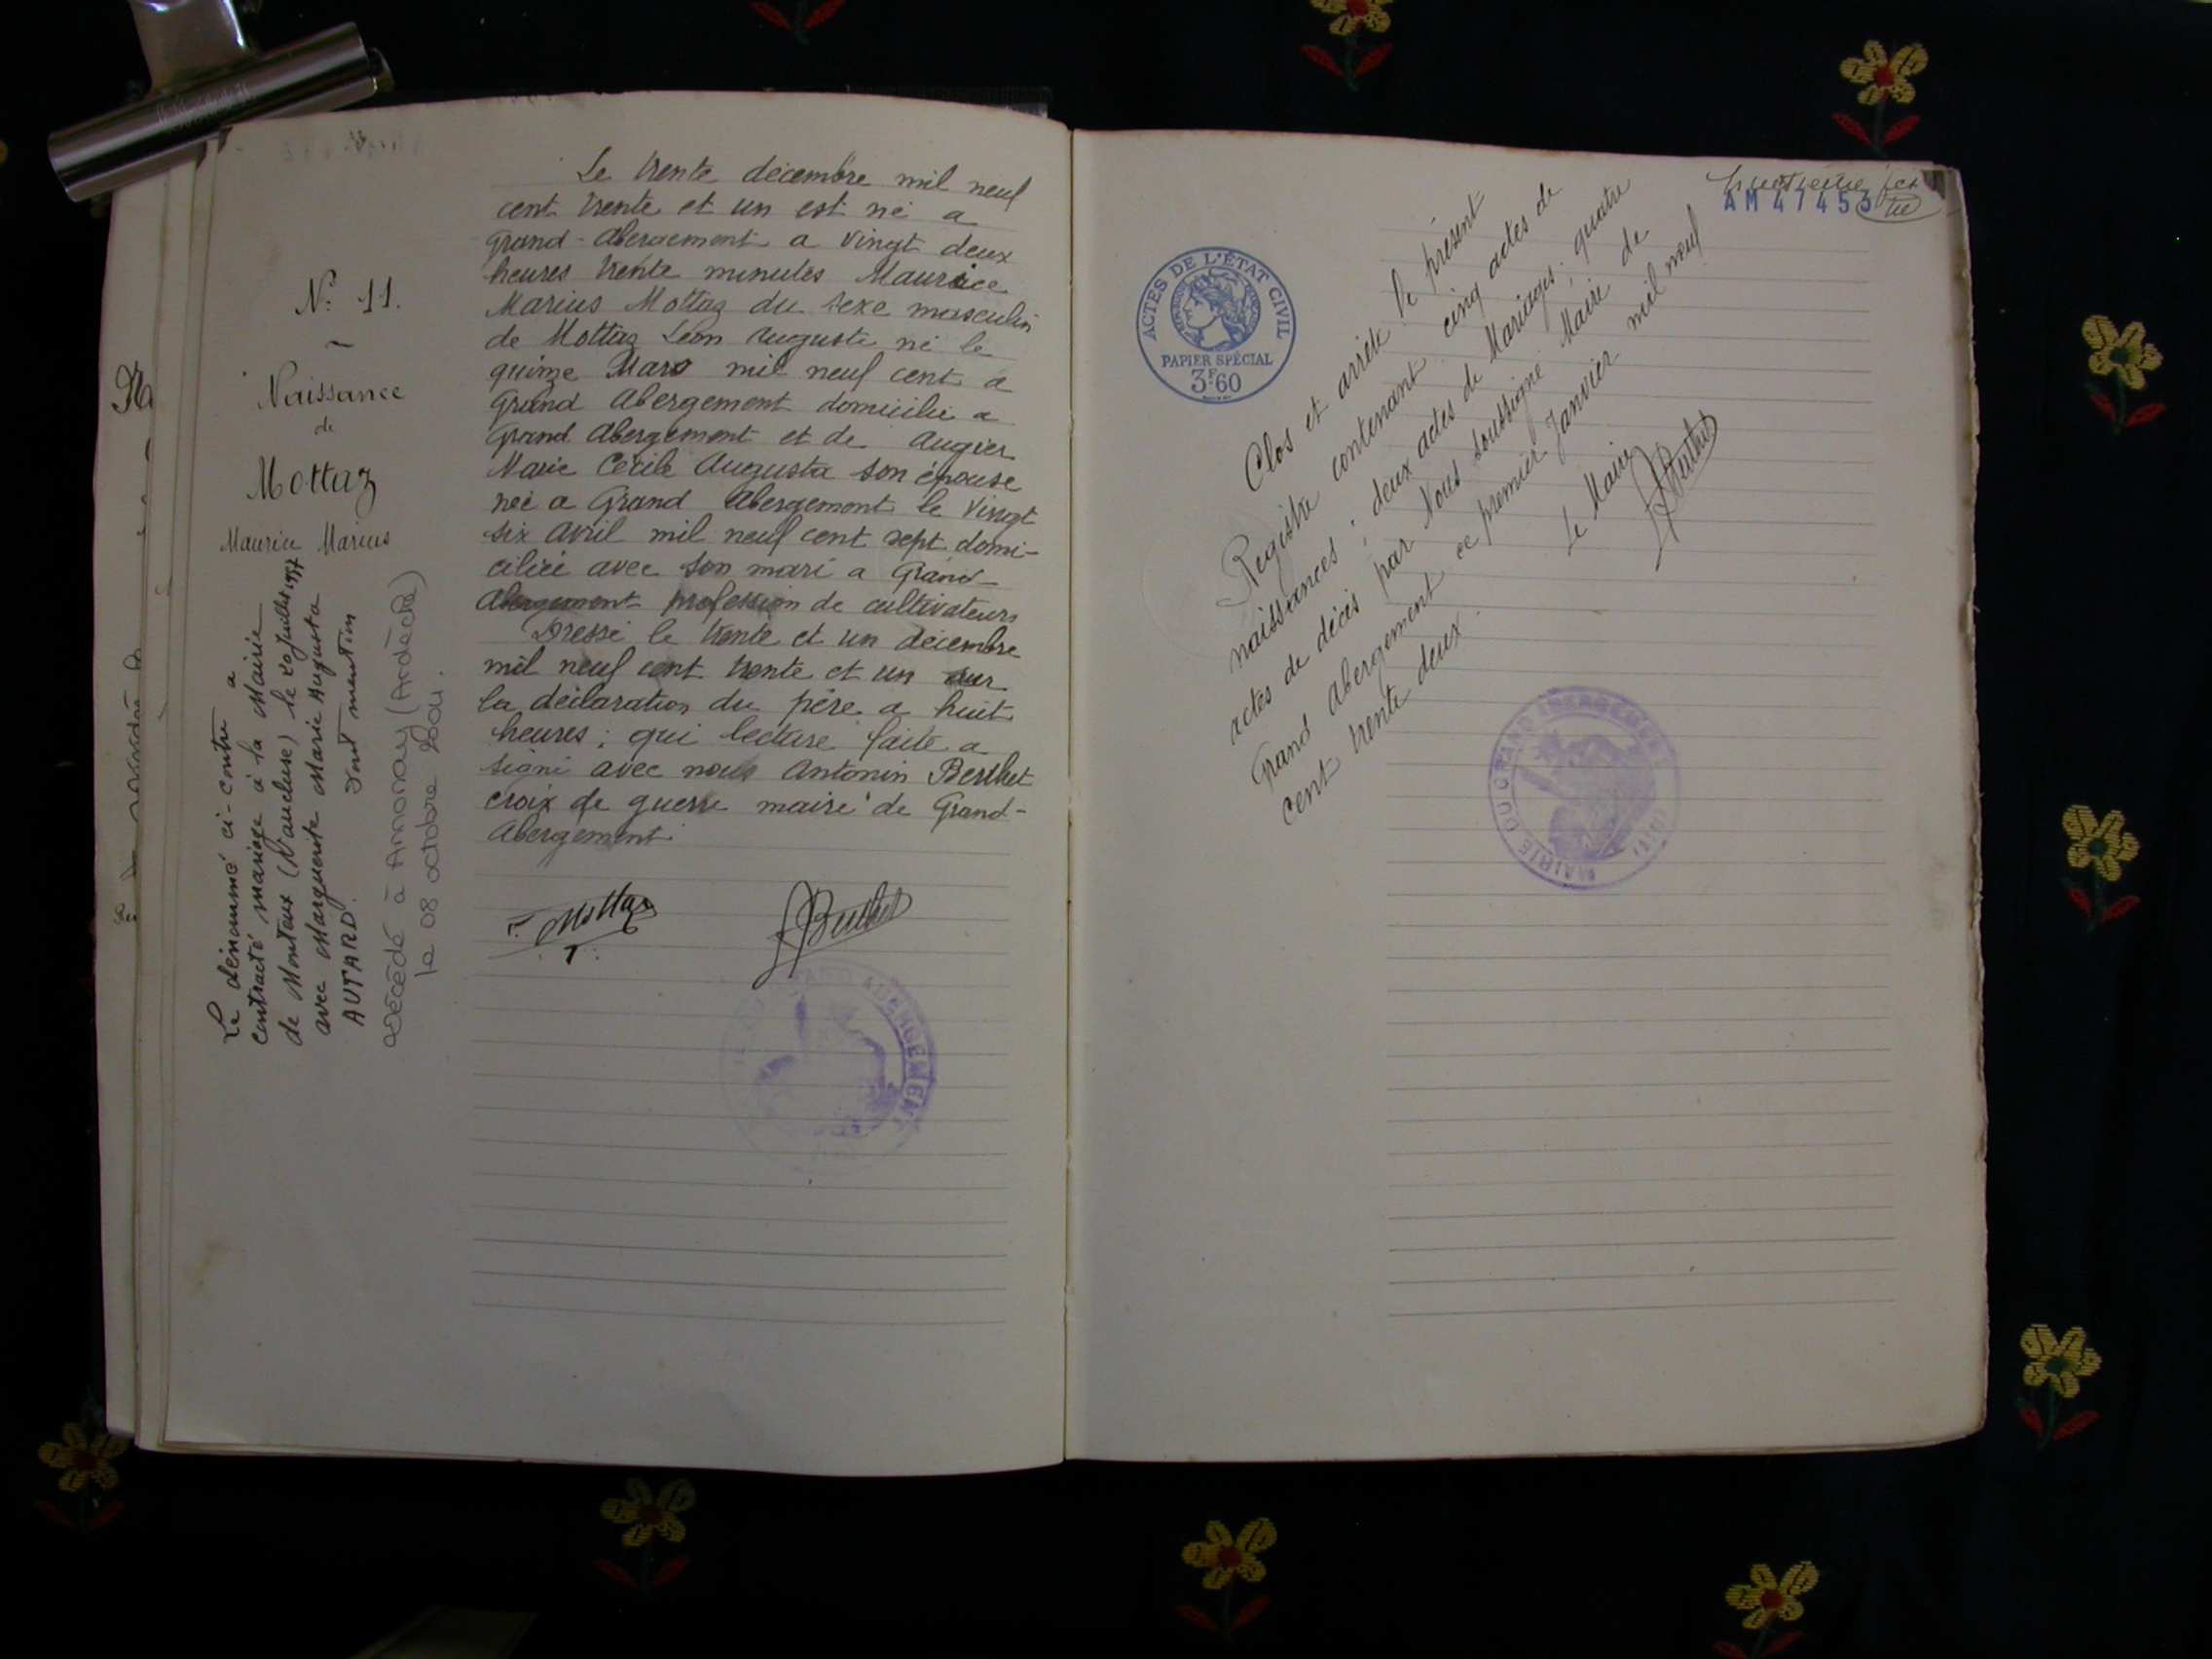 N° 11.
Naissance
de
Mottaz
Maurice Marius
Le dénommé ci-contre a
contracté mariage à la Mairie
de Monteux (Vaucluse) le 20 Juillet 1957
avec Marguerite Marie Augusta
AUTARD. Dont mention
Décédé à Annonay (Ardèche)
le 08 octobre
Le trente décembre mil neuf
cent trente et un est né a
Grand-Abergement a vingt deux
heures trente minutes Maurice
Marius Mottaz du sexe masculin
de Mottaz Léon Auguste né le
quinze Mars mil neuf cent a
Grand Abergement domicilié a
Grand Abergement et de Augier
Marie Cécile Augusta son épouse
née a Grand Abergement le Vingt
six avril mil neuf cent sept domi-
ciliée avec son mari a Grand-
Abergement profession de cultivateurs
Dressé le trente et un décembre
mil neuf cent trente et un sur
la déclaration du père a huit
heures ; qui lecture faite a
signé avec nous Antonin Berthet
croix de guerre maire de Grand-
Abergement
Mottaz
Berthet
GRAND ABERGEMENT
AM 47453
ACTES DE L'ÉTAT CIVIL
PAPIER SPÉCIAL
3F60
Clos et arrêté le présent
Registre contenant cinq actes de
naissances ; deux actes de Mariages ; quatre
actes de décès par Nous soussigné Maire de
Grand Abergement ce premier Janvier mil neuf
cent trente deux.
Le Maire
Berthet
MAIRIE DU GRAND ABERGEMENT